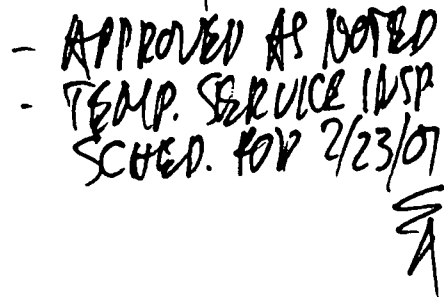 - APPROVED AS NOTED
- TEMP. SERVICE INSP.
SCHED. FOR 2/23/07